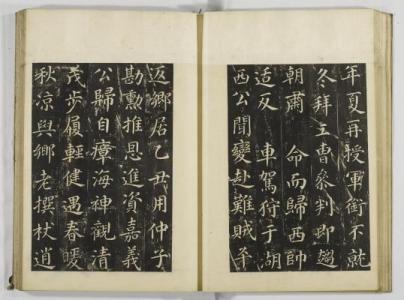 年夏再授軍銜不就
冬拜工曹參判即趨
朝肅　命而歸西帥
適反　車駕狩于湖
西公聞變赴難賊平
返鄉居乙丑用仲子
勘勳推恩進資嘉義
公歸自瘴海神觀清
茂步履輕健遇春暖
秋凉與鄉老撰杖逍